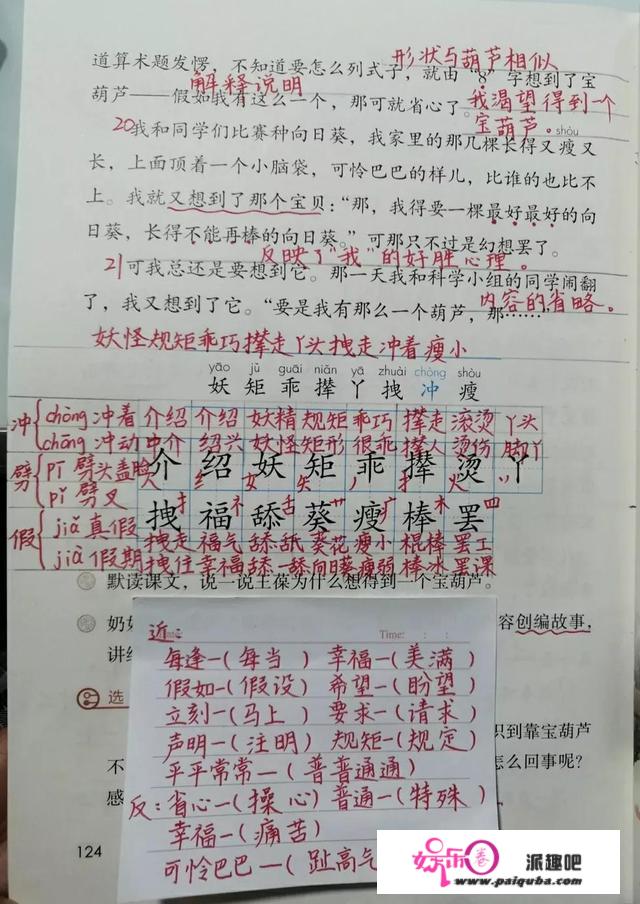 道算术题发愣，不知道要怎么列式子，就由“8”字想到了宝
形状与葫芦相似
葫芦——假如我有这么一个，那可就省心了。
解释说明
我渴望得到一个
宝葫芦。
shòu
20我和同学们比赛种向日葵，我家里的那几棵长得又瘦又
长，上面顶着一个小脑袋，可怜巴巴的样儿，比谁的也比不
上。我就又想到了那个宝贝：“那，我得要一棵最好最好的向
日葵，长得不能再棒的向日葵。”可那只不过是幻想罢了。
反映了“我”的好胜心理。
21可我总还是要想到它。那一天我和科学小组的同学闹翻
了，我又想到了它。“要是我有那么一个葫芦，那……”
内容的省略。
妖怪规矩乖巧撵走丫头拽走冲着瘦小
yāo jǔ guāi niǎn yā zhuài chòng shòu
妖 矩 乖 撵 丫 拽 冲 瘦
冲 chòng 冲着 介绍 介绍 妖精 规矩 乖巧 撵走 滚烫 丫头
chōng 冲动 中介 绍兴 妖怪 矩形 很乖 撵人 烫伤 脚丫
劈 pī 劈头盖脸
pǐ 劈叉
介 绍 妖 矩 乖 撵 烫 丫
人 纟 女 矢 丿 扌 火
扌 礻 舌 艹 疒 木 罒
拽 福 舔 葵 瘦 棒 罢
假 jiǎ 真假 拽走 福气 舔舐 葵花 瘦小 棍棒 罢工
jià 假期 拽住 幸福 舔一舔 向日葵 瘦弱 棒冰 罢课
默读课文，说一说王葆为什么想得到一个宝葫芦。
奶奶
容创编故事，
讲给
选
识到靠宝葫芦
不
怎么回事呢？
感
近：
Time: : :
每逢—（每当） 幸福—（美满）
假如—（假设） 希望—（盼望）
立刻—（马上） 要求—（请求）
声明—（注明） 规矩—（规定）
平平常常—（普普通通）
反：省心—（操心）普通—（特殊）
幸福—（痛苦）
可怜巴巴—（趾高气
124
娱乐圈 派趣吧
www.paiquba.com